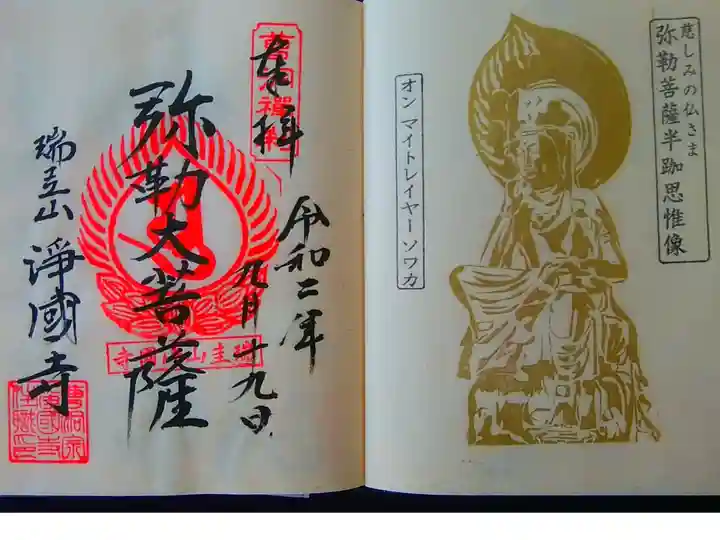 慈しみの仏さま
弥勒菩薩半跏思惟像
オン マイトレイヤー ソワカ
奉拝
令和二年
九月十九日
弥勒大菩薩
瑞圭山 淨國寺